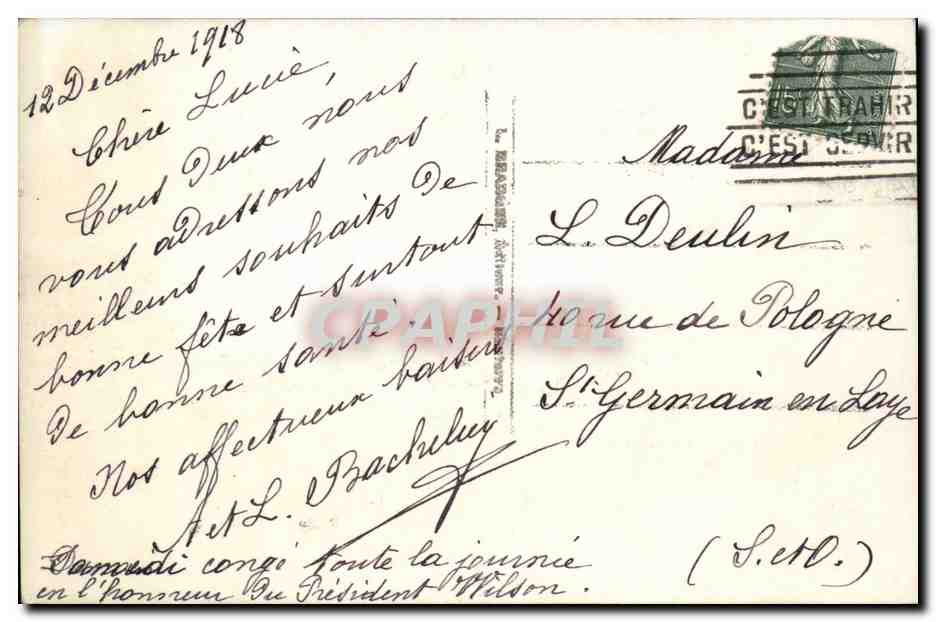 12 Décembre 1918
Chère Lucie,
Tous deux nous
vous adressons nos
meilleurs souhaits de
bonne fête et surtout
de bonne santé.
Nos affectueux baisers
A et L.
Samedi congé toute la journée
en l'honneur du Président Wilson.
C'EST TRAHIR
C'EST SERVIR
Madame
L. Deulin
40 rue de Pologne
St Germain en Laye
(S. et O.)
CPAPHIL